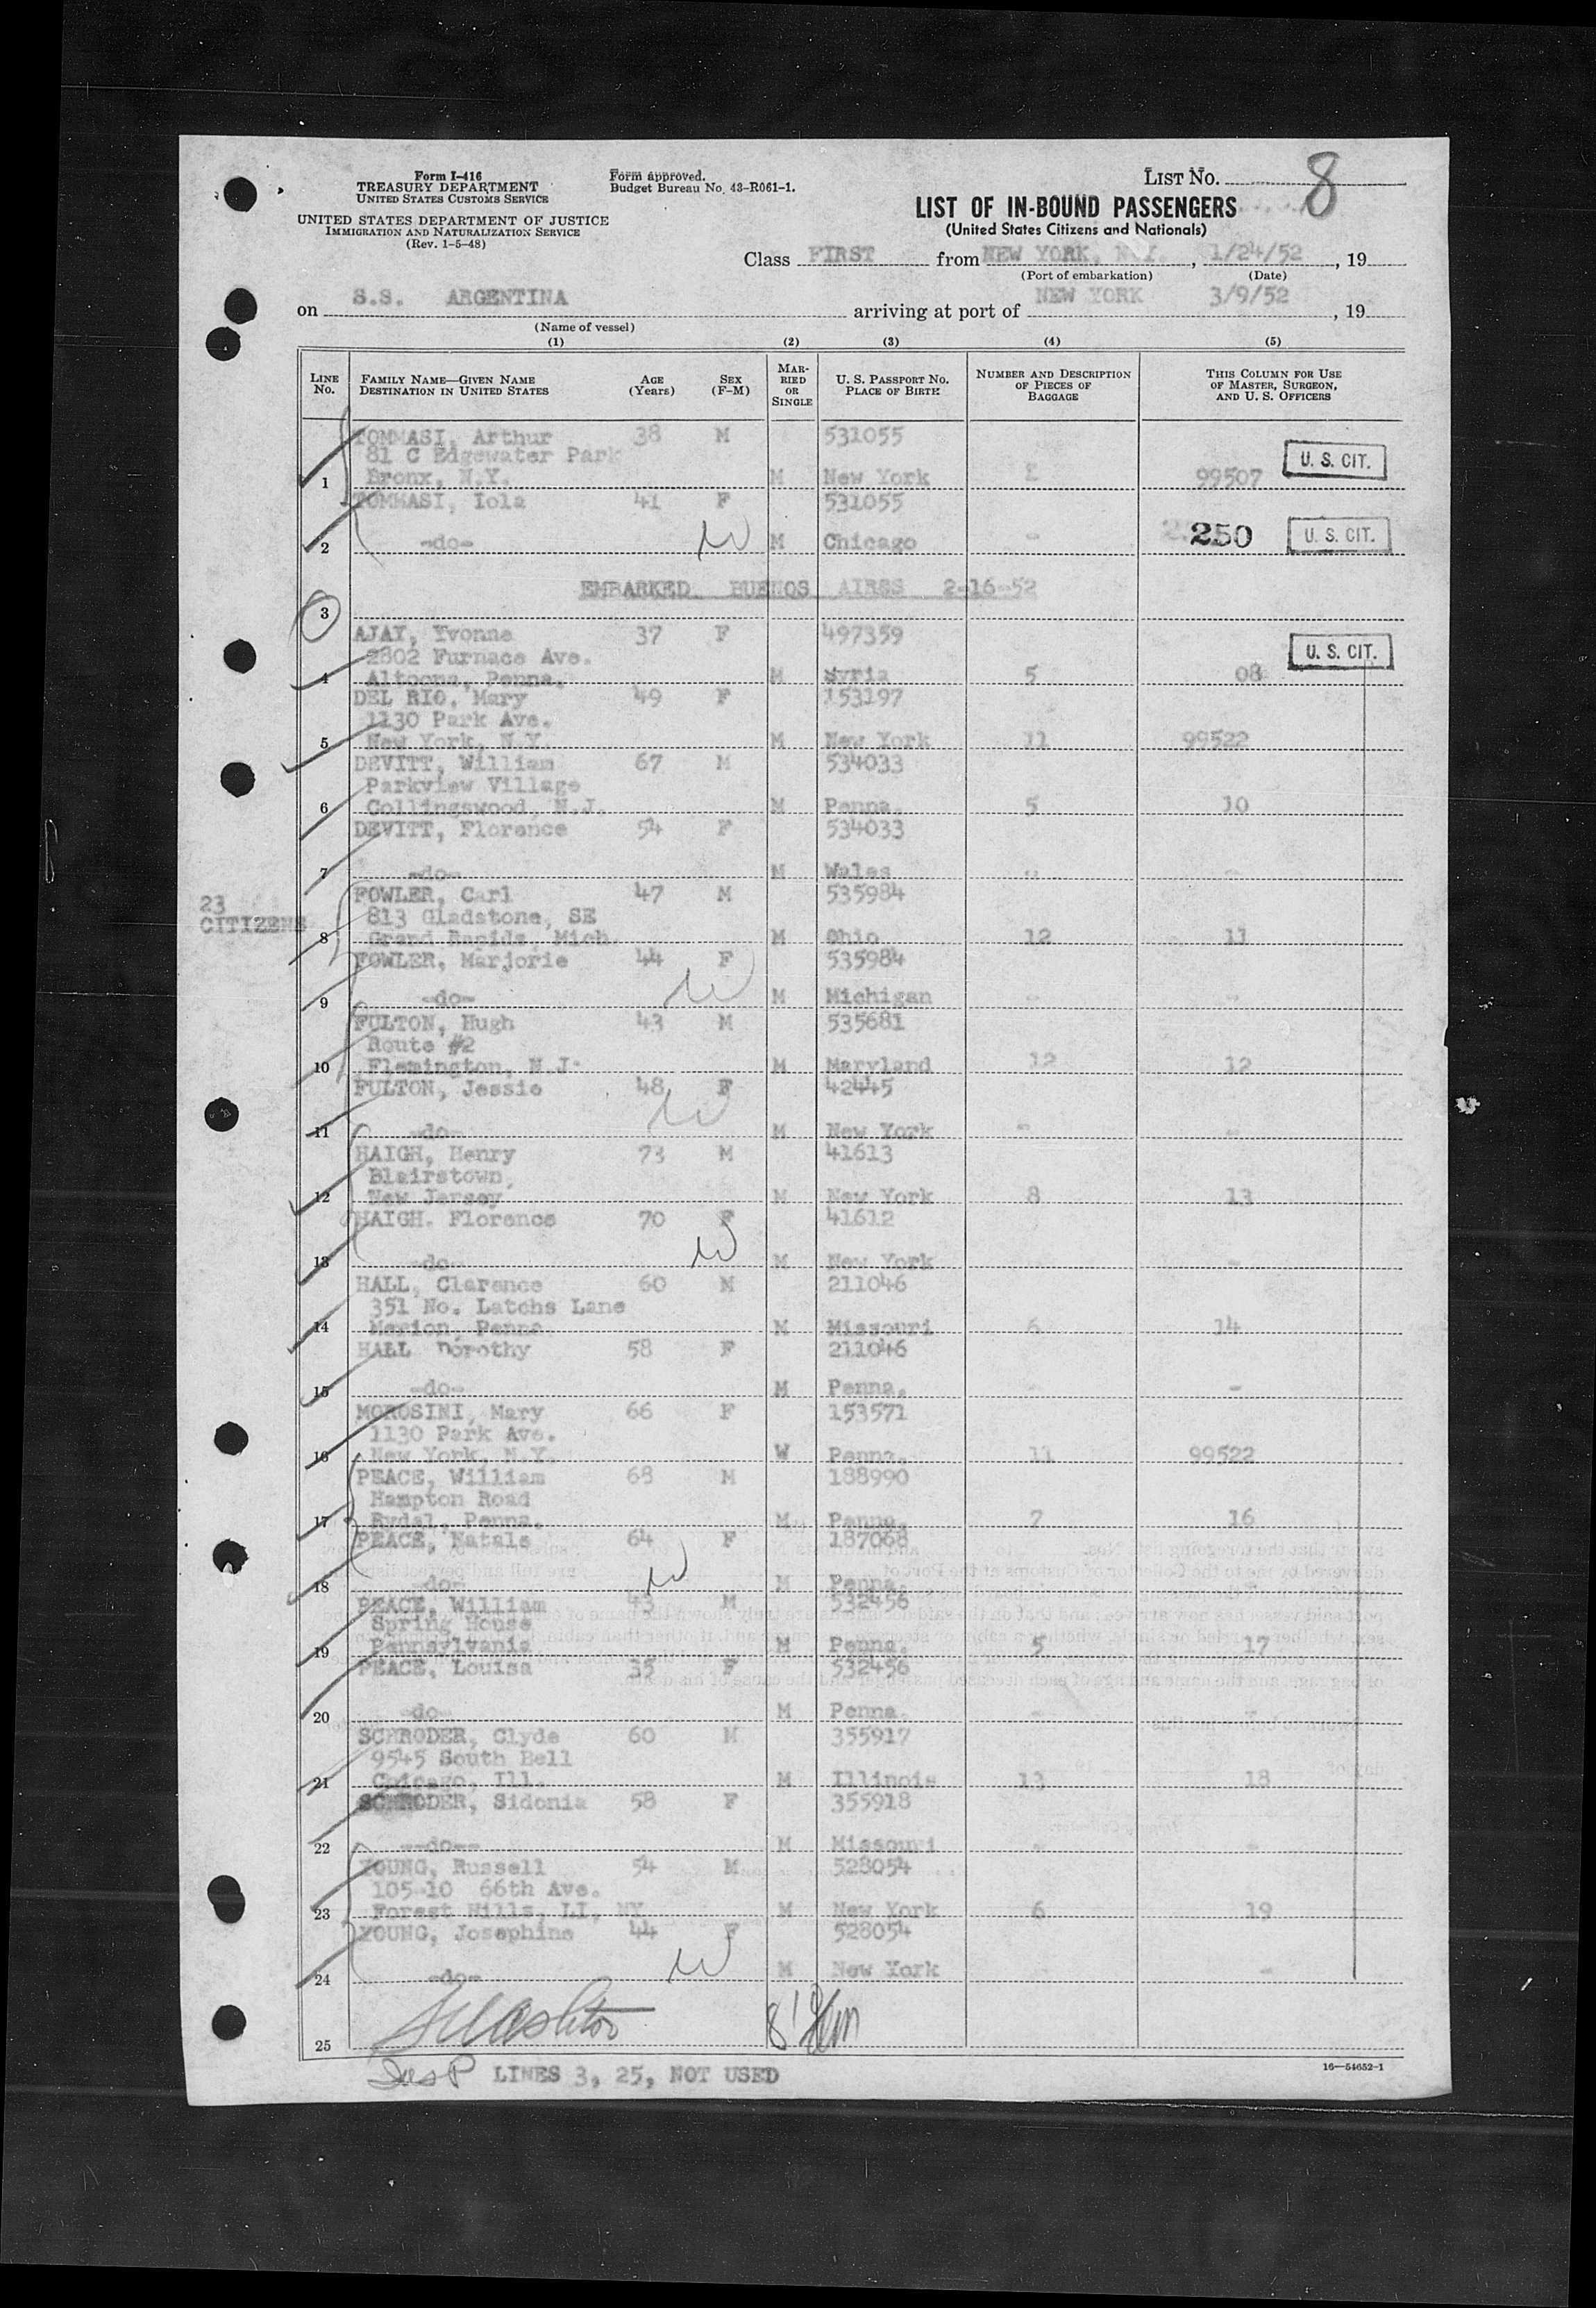 Form I-416
TREASURY DEPARTMENT
UNITED STATES CUSTOMS SERVICE
UNITED STATES DEPARTMENT OF JUSTICE
IMMIGRATION AND NATURALIZATION SERVICE
(Rev. 1-5-48)
Form approved.
Budget Bureau No. 43-R061-1.
LIST NO. 8
LIST OF IN-BOUND PASSENGERS
(United States Citizens and Nationals)
Class FIRST from NEW YORK, N.Y., 1/24/52, 19
(Port of embarkation) (Date)
on S.S. ARGENTINA arriving at port of NEW YORK 3/9/52, 19
(Name of vessel)
(1) (2) (3) (4) (5)
LINE No. FAMILY NAME—GIVEN NAME DESTINATION IN UNITED STATES AGE (Years) SEX (F-M) MARRIED OR SINGLE U. S. PASSPORT NO. PLACE OF BIRTH NUMBER AND DESCRIPTION OF PIECES OF BAGGAGE THIS COLUMN FOR USE OF MASTER, SURGEON, AND U. S. OFFICERS
TOMMASI, Arthur 38 M 531055
81 C Edgewater Park
1 Bronx, N.Y. M New York 99507 U. S. CIT.
TOMMASI, Iola 41 F 531055
2 -do- M Chicago - 250 U. S. CIT.
EMBARKED BUENOS AIRES 2-16-52
3
AJAY, Yvonne 37 F 497359
2802 Furnace Ave.
4 Altoona, Penna. M Syria 5 08 U. S. CIT.
DEL RIO, Mary 49 F 153197
1130 Park Ave.
5 New York, N.Y. M New York 11 99522
DEVITT, William 67 M 534033
Parkview Village
6 Collingswood, N.J. M Penna. 5 10
DEVITT, Florence 54 F 534033
7 -do- M Wales - -
FOWLER, Carl 47 M 535984
813 Gladstone, SE
23
CITIZENS
8 Grand Rapids, Mich. M Ohio 12 11
FOWLER, Marjorie 44 F 535984
9 -do- M Michigan - -
FULTON, Hugh 43 M 535681
Route #2
10 Flemington, N.J. M Maryland 12 12
FULTON, Jessie 48 F 42445
11 -do- M New York - -
HAIGH, Henry 73 M 41613
Blairstown,
12 New Jersey M New York 8 13
HAIGH. Florence 70 F 41612
13 -do- M New York - -
HALL, Clarence 60 M 211046
351 No. Latchs Lane
14 Merion, Penna. M Missouri 6 14
HALL Dorothy 58 F 211046
15 -do- M Penna. - -
MOROSINI, Mary 66 F 153571
1130 Park Ave.
16 New York, N.Y. W Penna. 11 99522
PEACE, William 68 M 188990
Hampton Road
17 Rydal, Penna. M Penna. 7 16
PEACE, Natale 64 F 187068
18 -do- M Penna.
PEACE, William 43 M 532456
Spring House
19 Pennsylvania M Penna. 5 17
PEACE, Louisa 35 F 532456
20 -do- M Penna. - -
SCHRODER, Clyde 60 M 355917
9545 South Bell
21 Chicago, Ill. M Illinois 13 18
SCHRODER, Sidonia 58 F 355918
22 --do-- M Missouri - -
YOUNG, Russell 54 M 528054
105-10 66th Ave.
23 Forest Hills, LI, NY M New York 6 19
YOUNG, Josephine 44 F 528054
24 -do- M New York - -
25
InsP LINES 3, 25, NOT USED
16—54652-1